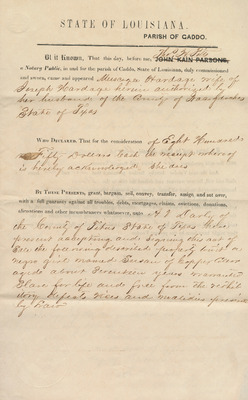 STATE OF LOUISIANA.
PARISH OF CADDO.
BE IT KNOWN, That this day, before me, JOHN KAIN PARSONS,
a Notary Public, in and for the parish of Caddo, State of Louisiana, duly commissioned
and sworn, came and appeared Hardage wife of
Joseph Hardage herein authorized by
her husband of the County of
State of Texas
WHO DECLARED That for the consideration of Eight Hundred
Fifty Dollars Cash the receipt whereof
is hereby acknowledged she does
BY THESE PRESENTS, grant, bargain, sell, convey, transfer, assign and set over,
with a full guaranty against all troubles, debts, mortgages, claims, evictions, donations,
alienations and other incumbrances whatsoever, unto
the County of Titus State of Texas
present accepting and signing this act of
Sale the following described property to wit a
negro girl named Susan of Copper Color
aged about Seventeen years warranted
Slave for life and free from the redhibitory
vices and maladies
by Law